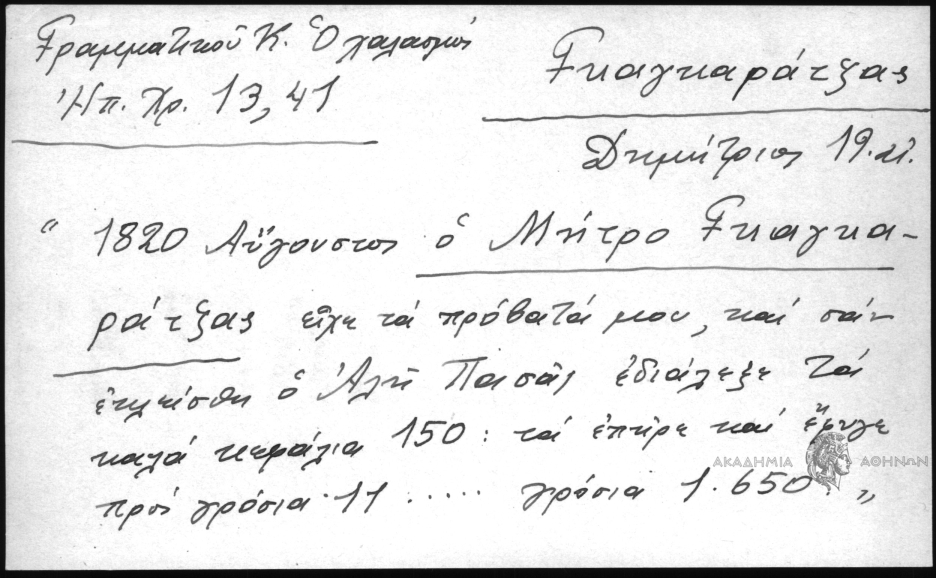 Γραμματικού Κ. Ὁ χαλασμός
Ἠπ. Χρ. 13, 41
Γκαγκαράτζας
Δημήτριος 19. αἰ.
" 1820 Αὔγουστος ὁ Μῆτρο Γκαγκα-
ράτζας εἶχε τά πρόβατά μου, καί σάν
ἐκλείσθη ὁ Ἀλῆ Πασᾶς ἐδιάλεξε τά
καλά κεφάλια 150: τά ἐπῆρε καί ἔφυγε
πρός γρόσια 11 ..... γρόσια 1.650. "
ΑΚΑΔΗΜΙΑ ΑΘΗΝΩΝ